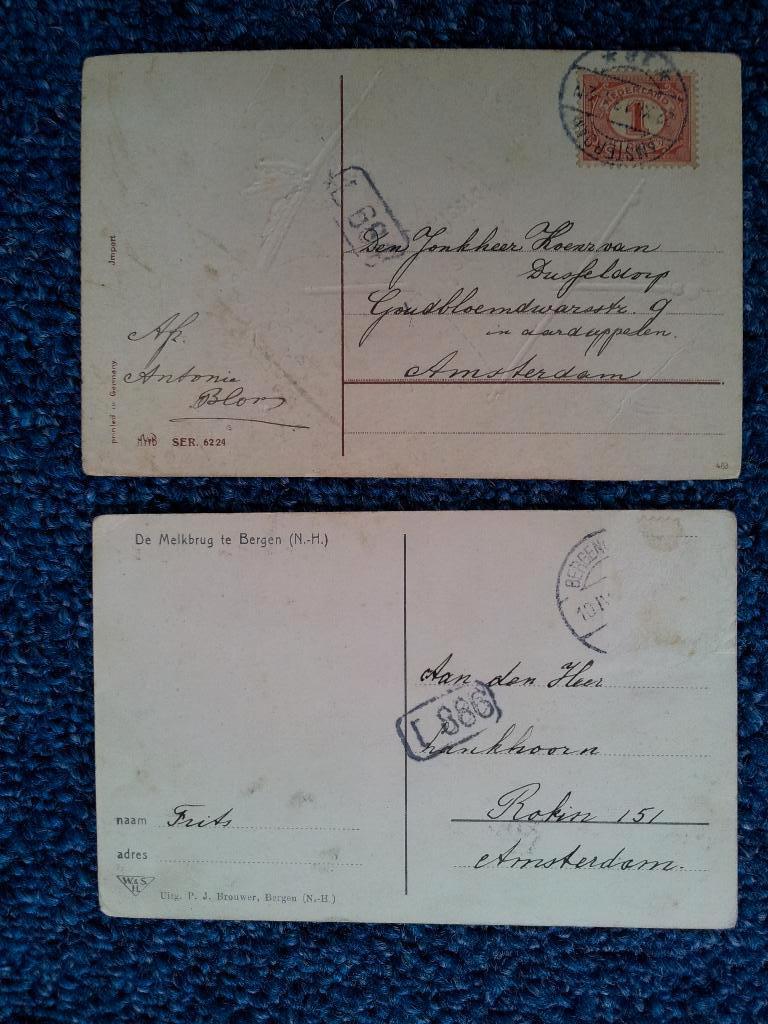 NEDERLAND
1
AMSTERDAM
Import
Den Jonkheer
van
Dusseldorp
Goudbloemdwarsstr. 9
in aardappelen.
Amsterdam
Afz.
Antonie
printed in Germany
SER. 6224
463
De Melkbrug te Bergen (N.-H.)
BERGEN
Aan den Heer
L 886
Rokin 151
naam Frits
Amsterdam.
adres
W & S
H.
Uitg. P. J. Brouwer, Bergen (N.-H.)